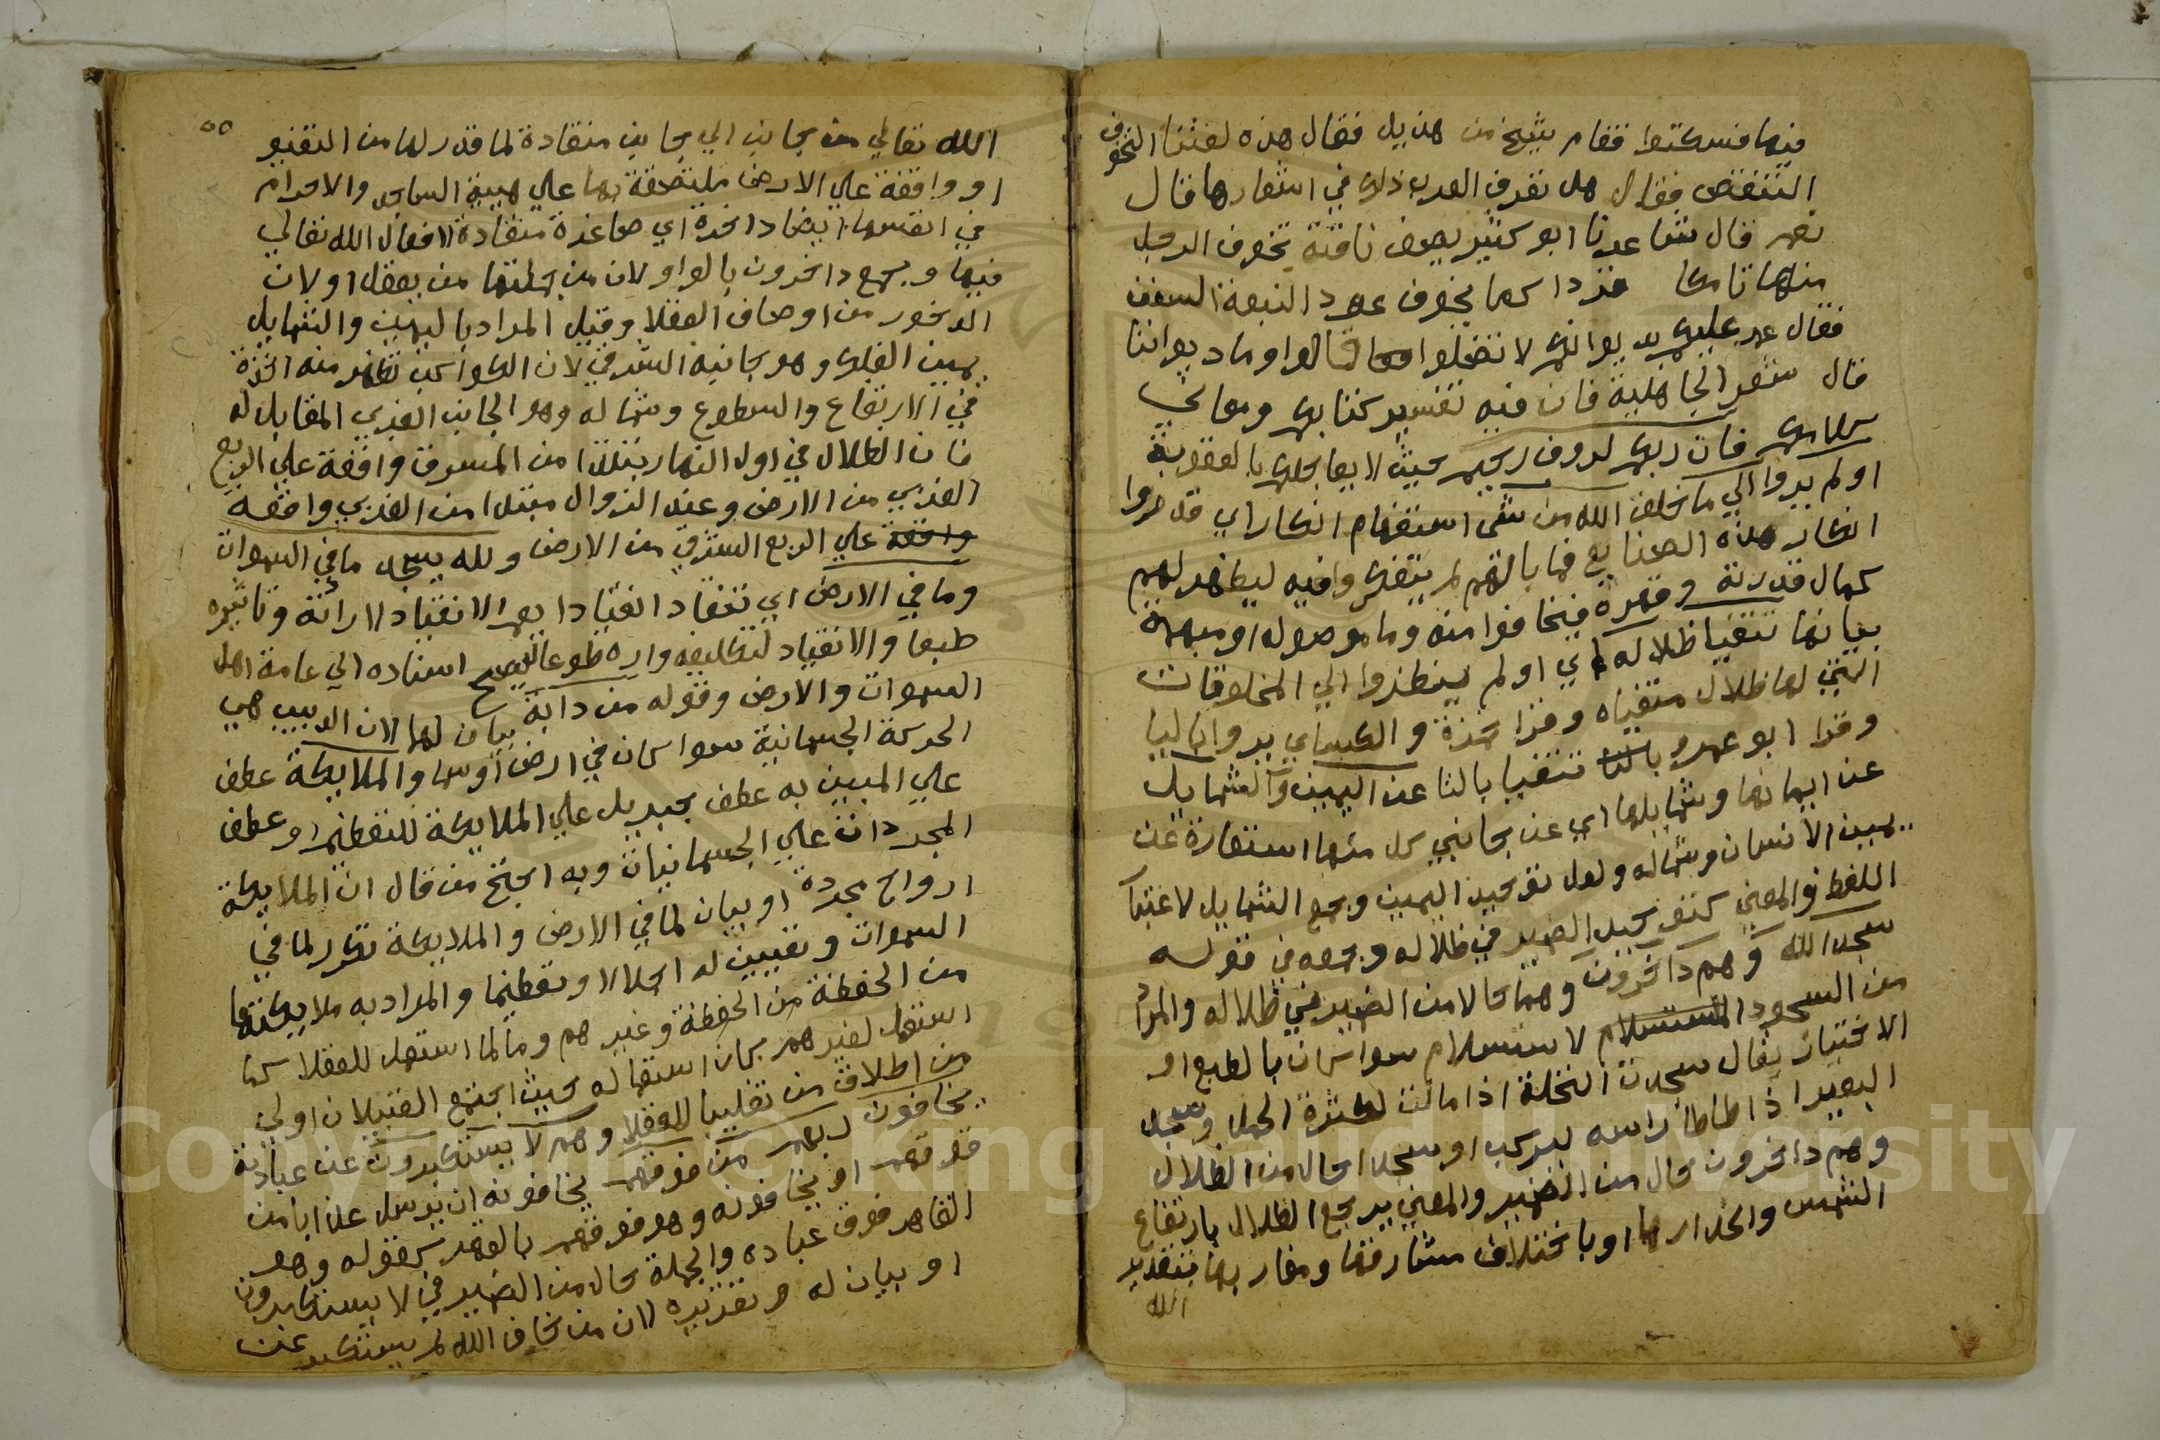 فيها فسكتوا فقام شيخ من هذيل فقال هذه لغتنا التخوف
التنقص فقال هل تعرف العرب ذلك في اشعارها قال
نعم قال شاعرنا ابو كثير يصف ناقته تخوف الرحل
منها تامكا قردا كما تخوف عود النبعة السفن
فقال عمر عليكم بديوانكم لا تضلوا قالوا وما ديواننا
قال شعر الجاهلية فان فيه تفسير كتابكم ومعاني
كلامكم فان ربكم لروف رحيم حيث لا يعاجلكم بالعقوبة
اولم يروا الي ما خلق الله من شي استفهام انكار اي قد مروا
انكار هذه الصنايع فما بالهم لم يتفكروا فيه ليظهر لهم
كمال قدرته وقهره فيخافوا منه وما موصوله او مبهمة
بيانها تتفيا ظلاله اي اولم ينظروا الي المخلوقات
التي لها ظلال متفياه وقرا حمزة والكسائي تروا بالتا
وقرا ابو عمرو بالتا تتفيا بالتا عن اليمين والشمايل
عن ايمانها وشمايلها اي عن جانبي كل منها استعارة عن
يمين الانسان وشماله ولعل توحيد اليمين وجمع الشمايل لاعتبار
اللفظ والمعني كتوحيد الضمير في ظلاله وجمعه في قوله
سجدا لله وهم داخرون وهما حالا من الضمير في ظلاله والمراد
من السجود الاستسلام لاستسلام سوا كان بالطبع او
الاختيار يقال سجدت النخلة اذا مالت لكثرة الحمل وسجد
البعير اذا طاطا راسه ليركب او سجدا حال من الظلال
وهم داخرون حال من الضمير والمعني يرجع الظلال بارتفاع
الشمس وانحدارها او باختلاف مشارقها ومغاربها بتقدير
الله
٥٥
الله تعالي من جانب الي جانب منقادة لما قدر لها من التفيو
او واقعة علي الارض ملتصقة بها علي هيية الساجد والاجرام
في انفسها ايضا داخرة اي صاغرة منقادة لافعال الله تعالي
فيها وجمع داخرون بالواو لان من جملتها من يعقل او لان
الدخور من اوصاف العقلا وقيل المراد باليمين والشمايل
يمين الفلك وهو جانبه الشرقي لان الكواكب تظهر منه اخذة
في الارتفاع والسطوع وشماله وهو الجانب الغربي المقابل له
فان الظلال في اول النهار تبتدا من المشرق واقعة علي الربع
الغربي من الارض وعند الزوال مبتدا من الغربي واقعه
واقعة علي الربع الشرقي من الارض ولله يسجد ما في السموات
وما في الارض اي تنقاد انقيادا يعم الانقياد لارادته وتاثيره
طبعا والانقياد لتكليفه وامره طوعا ليصح اسناده الي عامة اهل
السموات والارض وقوله من دابة بيان لهما لان الدبيب هي
الحركة الجسمانية سوا كان في ارض او سما والملايكة عطف
علي المبين به عطف جبريل علي الملايكة للتعظيم او عطف
المجردات علي الجسمانيات وبه احتج من قال ان الملايكة
ارواح مجردة او بيان لما في الارض والملايكة تكرير لما في
السموات وتعيين له اجلالا وتعظيما والمراد به ملايكتها
من الحفظة من الحفظة وغيرهم وما لما استعمل للعقلا كما
استعمل لغيرهم كان استعماله حيث اجتمع القبيلان اولي
من اطلاق من تغليبا للعقلا وهم لا يستكبرون عن عبادته
يخافون ربهم من فوقهم يخافونه ان يرسل عذابا من
فوقهم او يخافونه وهو فوقهم بالقهر كقوله وهو
القاهر فوق عباده والجملة حال من الضمير في لا يستكبرون
او بيان له وتقريره لان من خاف الله لم يستكبر عن
Copyright © King Saud University